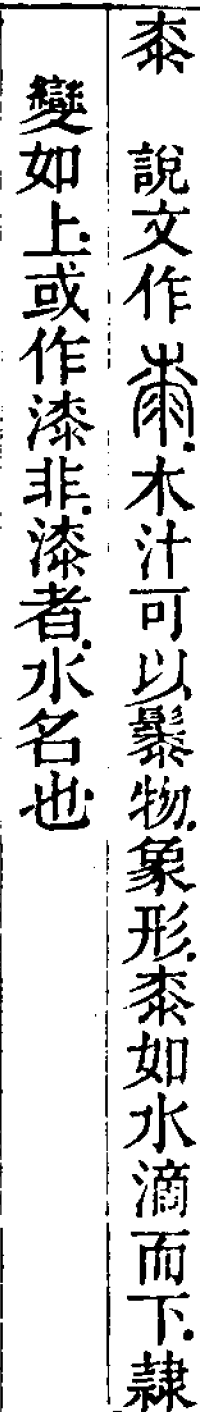 桼　說文作桼木汁可以䰍物象形桼如水滴而下隷
變如上或作漆非漆者水名也